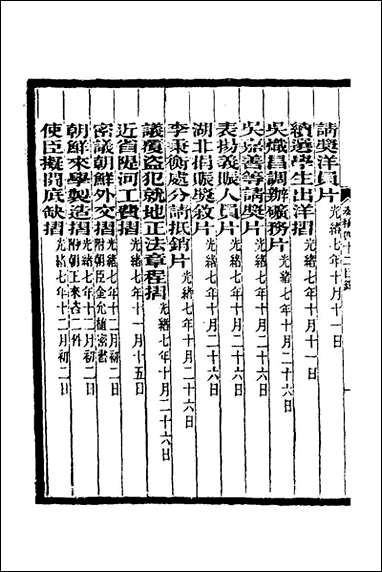 請獎洋員片 光緒七年十月十一日
續選學生出洋摺 光緒七年十月十一日
吳熾昌調辦礦務片 光緒七年十月二十六日
吳嘉善等請獎片 光緒七年十月二十六日
表揚義賑人員片 光緒七年十月二十六日
湖北捐賑獎敘片 光緒七年十月二十六日
李秉衡處分請抵銷片 光緒七年十月二十六日
議覆盜犯就地正法章程摺 光緒七年十月二十六日
近省隄河工費摺 光緒七年十一月十五日
密議朝鮮外交摺 光緒七年十二月初二日 附朝臣金允植密書
朝鮮來學製造摺 光緒七年十二月初二日 附朝王來咨二件
使臣擬開底缺摺 光緒七年十二月初二日